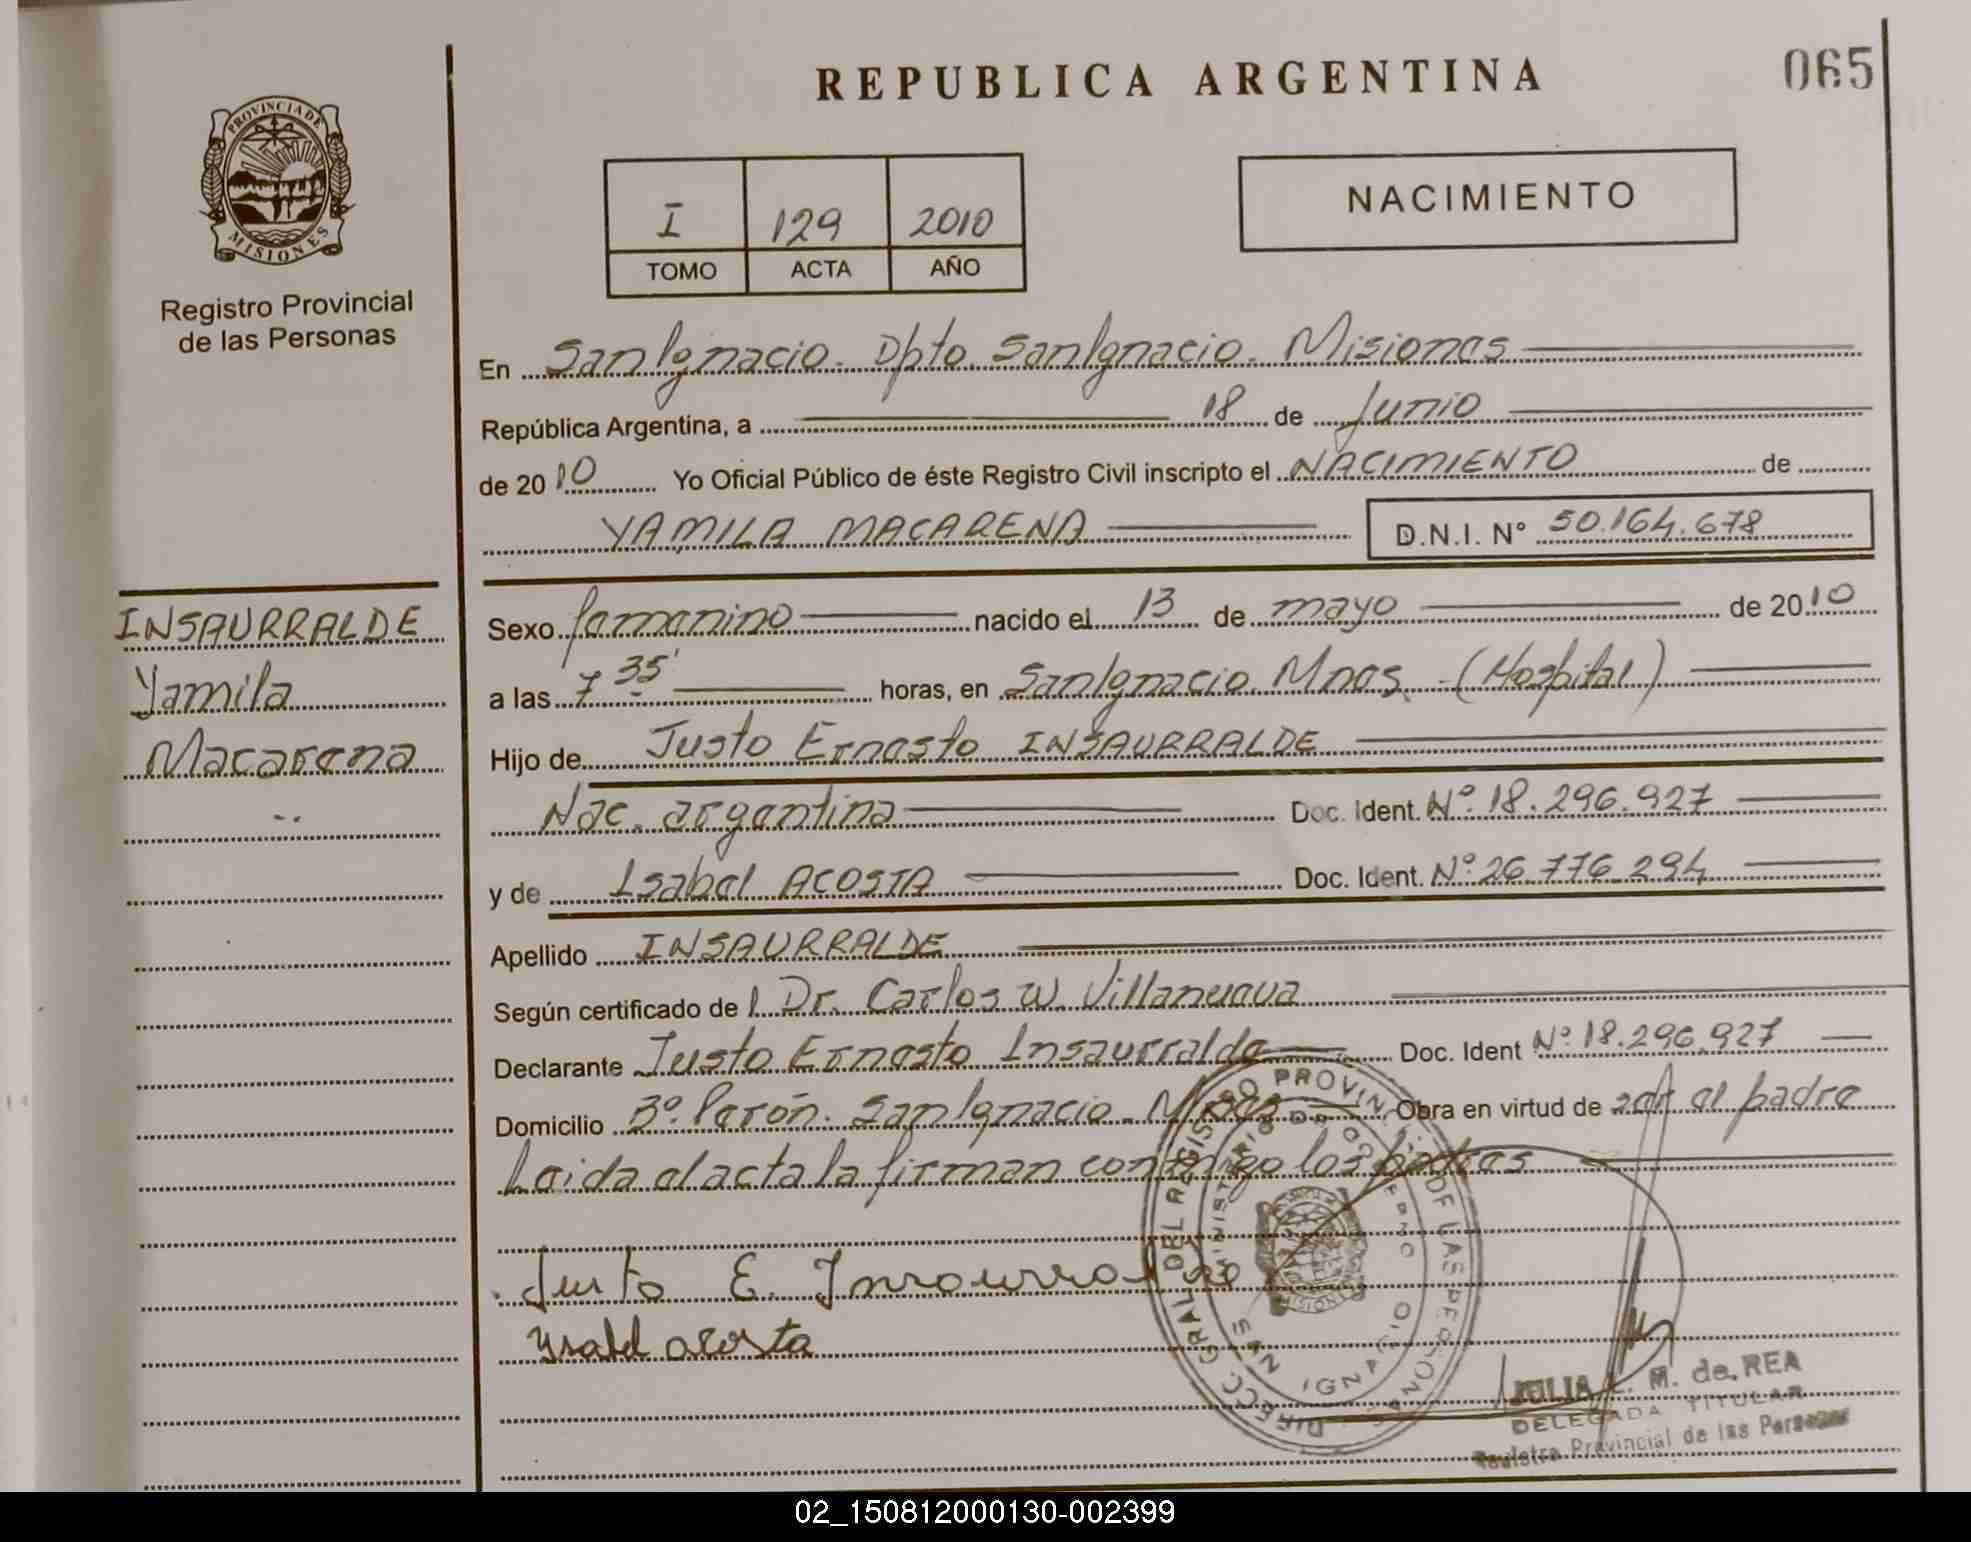 REPUBLICA ARGENTINA
065
PROVINCIA DE
MISIONES
Registro Provincial
de las Personas
I 129 2010
TOMO ACTA AÑO
NACIMIENTO
En San Ignacio. Dpto. San Ignacio. Misiones
República Argentina, a 18 de Junio
de 2010 Yo Oficial Público de éste Registro Civil inscripto el NACIMIENTO de
YAMILA MACARENA D.N.I. N° 50.164.678
INSAURRALDE
Yamila
Macarena
Sexo femenino nacido el 13 de mayo de 2010
a las 7 35' horas, en San Ignacio. Mnes. (Hospital)
Hijo de Justo Ernesto INSAURRALDE
Nac. argentina Doc. Ident. Nº 18.296.927
y de Isabel ACOSTA Doc. Ident. Nº 26.776.294
Apellido INSAURRALDE
Según certificado del Dr. Carlos W. Villanueva
Declarante Justo Ernesto Insaurralde Doc. Ident Nº 18.296.927
Domicilio Bº. Perón. San Ignacio. Mnes Obra en virtud de ser el padre
Leida el acta la firman conmigo los padres
Justo E. Insaurralde
Isabel acosta
DIRECC. GRAL. DEL REGISTRO PROVINC. DE LAS PERSONAS
MINISTERIO DE GOBIERNO
SAN IGNACIO
MISIONES
JULIA L. M. de REA
DELEGADA TITULAR
Registro Provincial de las Personas
02_150812000130-002399